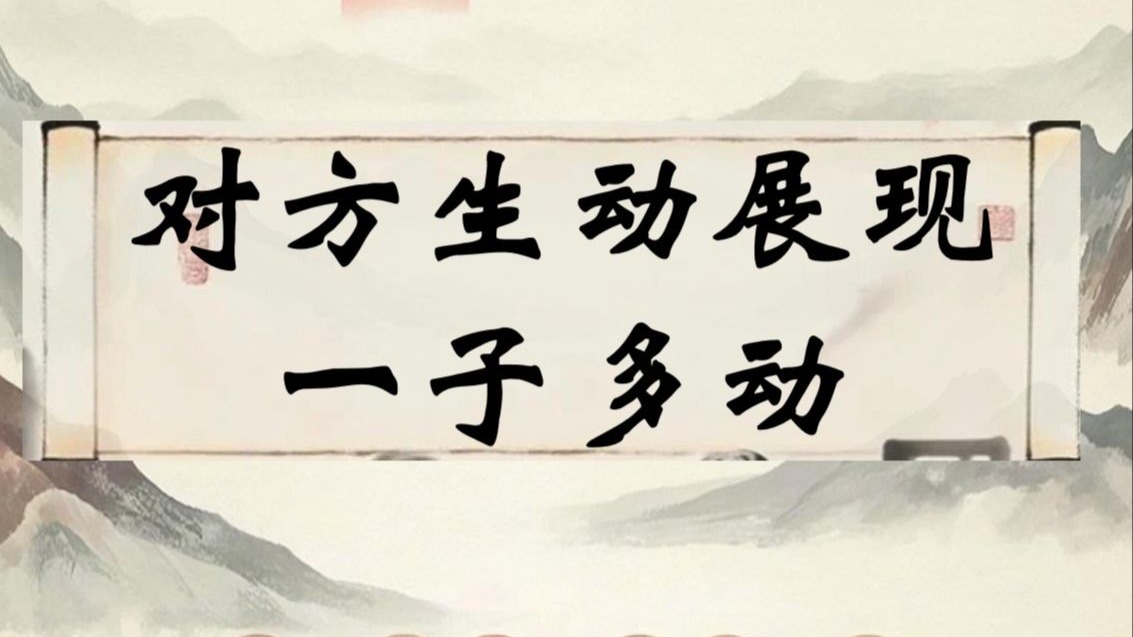 对方生动展现
一子多动